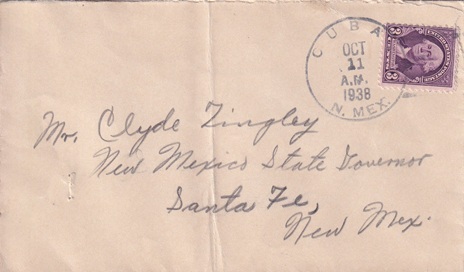 CUBA
OCT
11
A.M.
1938
N. MEX.
3 3
Mr. Clyde Tingley
New Mexico State Governor
Santa Fe,
New Mex.